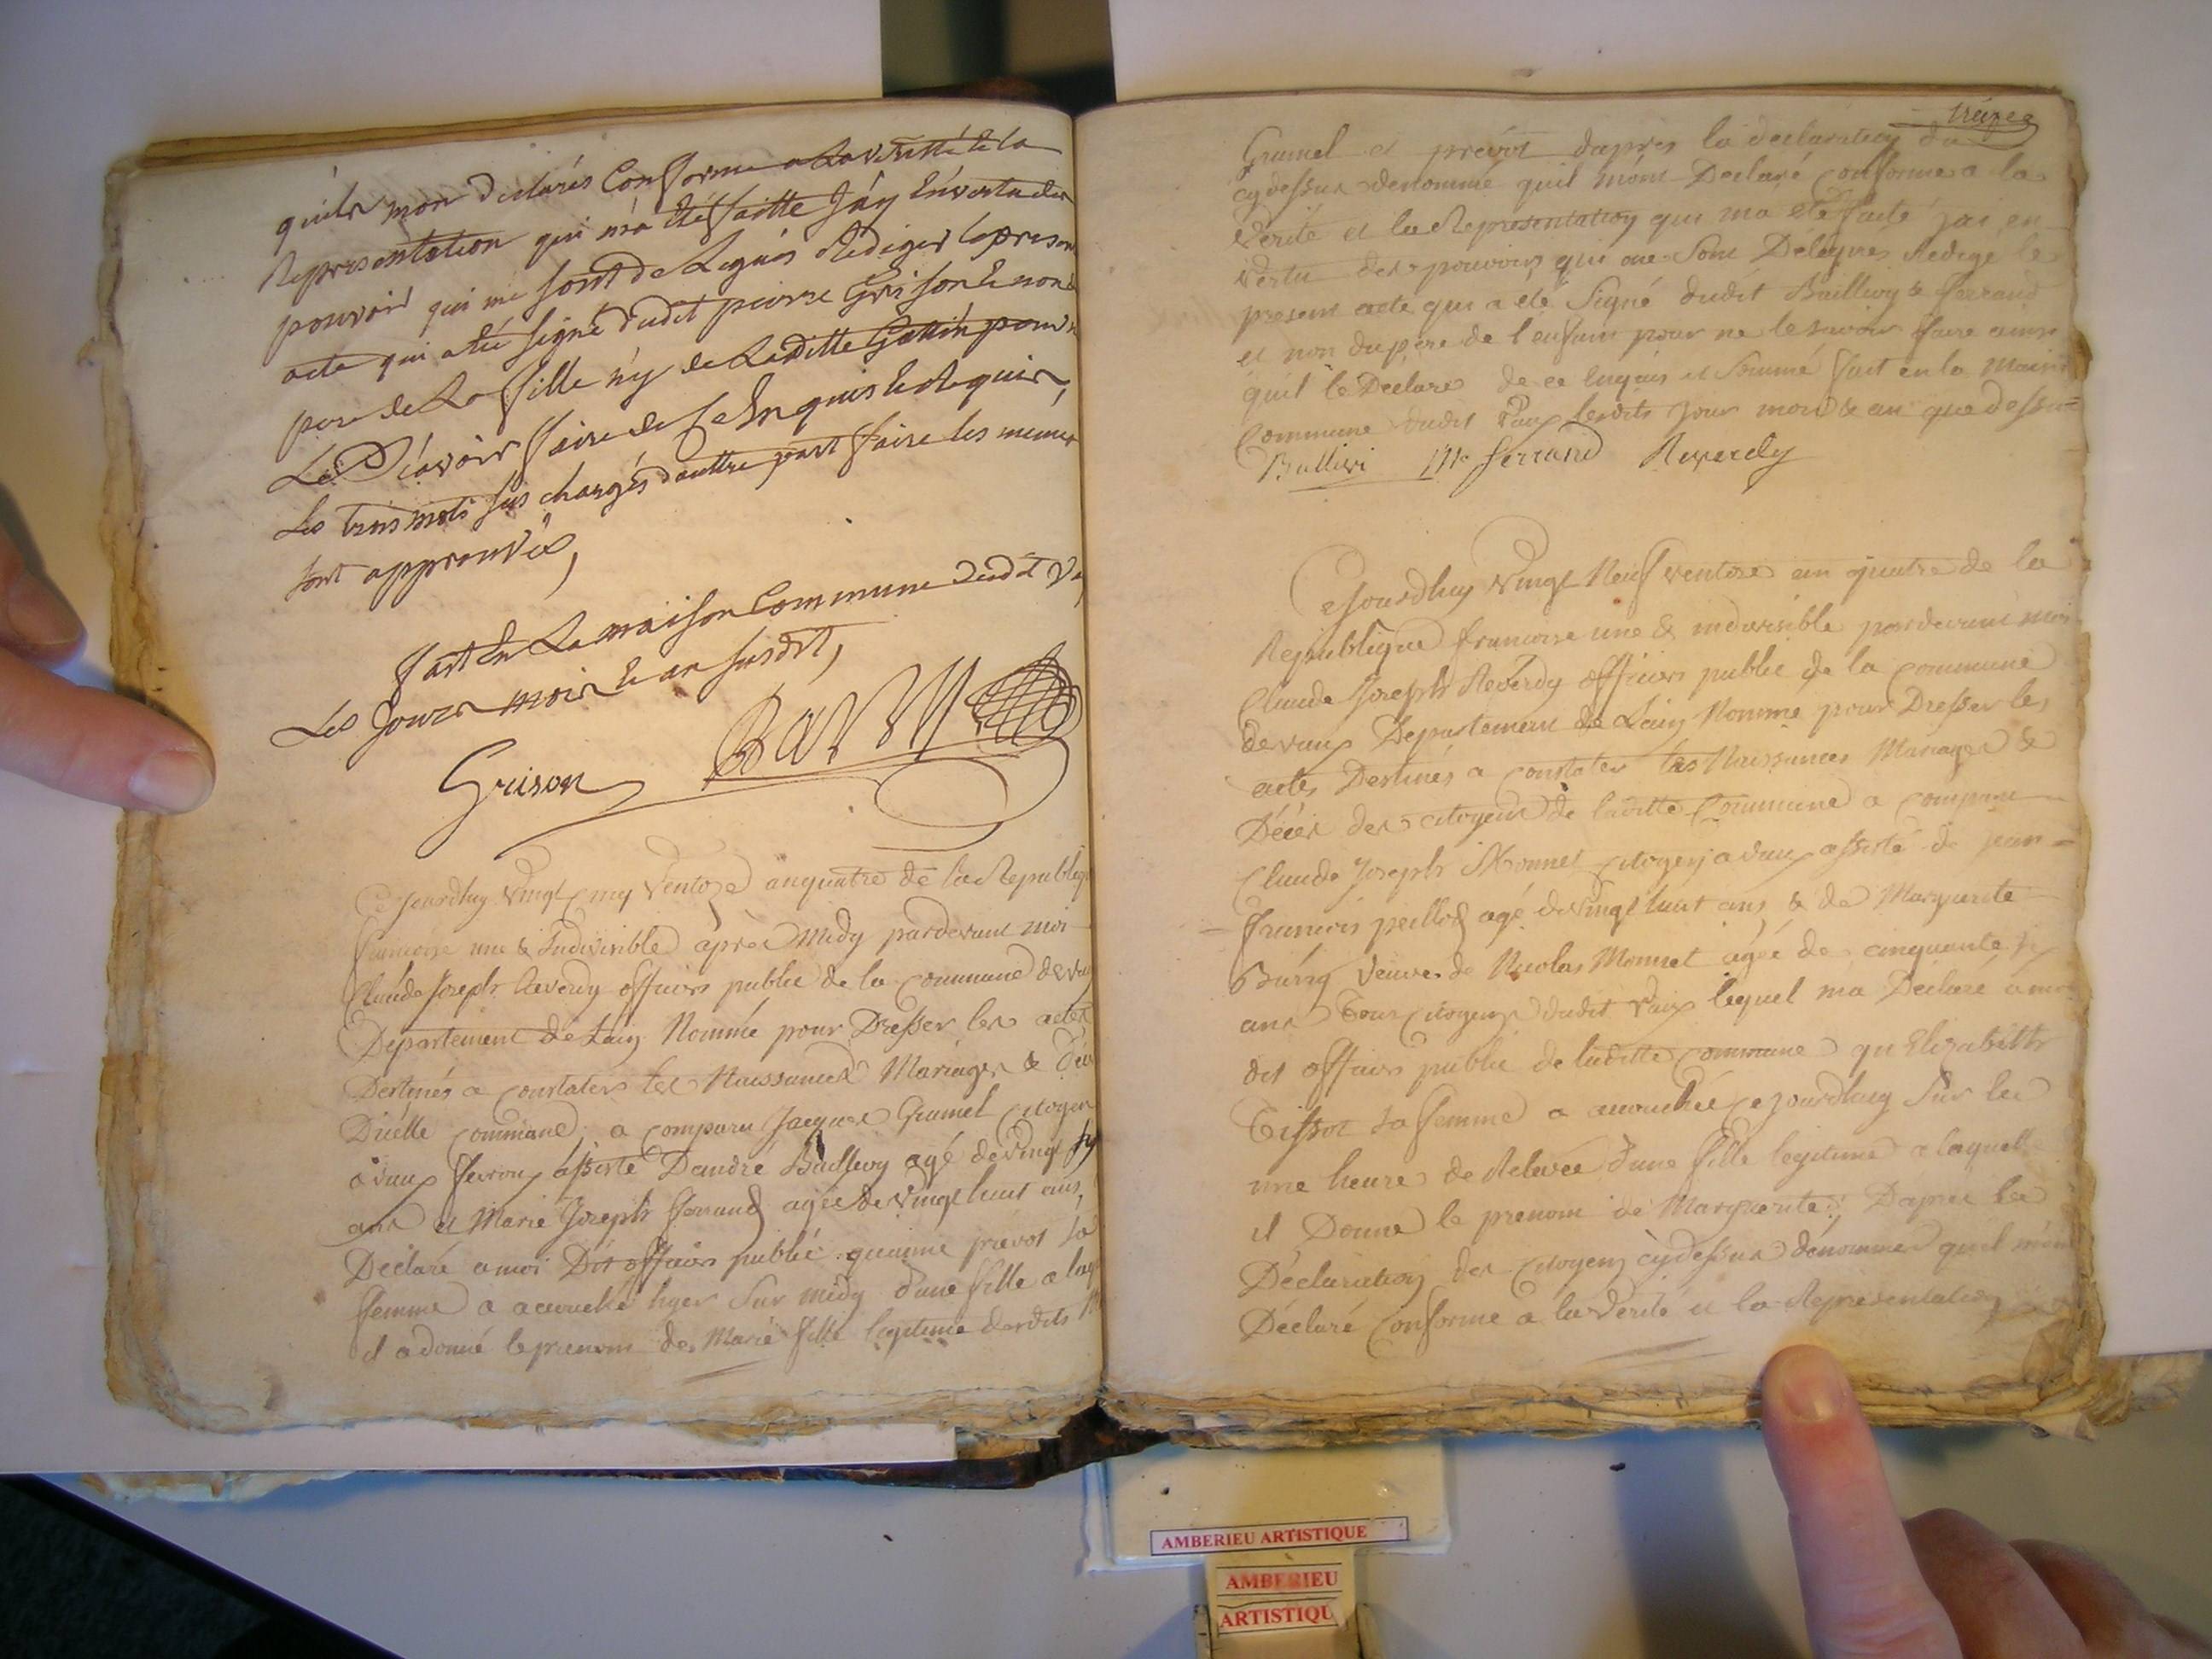 quils mon declarés Conforme a La véritté & la
Representation qui ma été faitte Jáy En vertu des
pouvoir qui me sont de Legués Rédiger le presant
acte qui a été signé dudit pierre Grison & non
pere de La fille n'y de Laditte Gottin pour ne
Le Sçavoir faire de ce Enquis & Requis,
Les trois mots sus chargés d'auttre part faire les memes
sont approuvés,
fait En La maison Commune dudit Va
Les Jours mois & an susdit,
Grison
Cejourdhuy Vingt cinq Ventoze an quatre de la Republiq
francoise une & Indivisible après Midy pardevant moi
Claude Joseph Reverdy officier public de la commune de vaux
Departement de Lain Nommé pour Dresser les actes
Destinés a constater les Naissances Mariages & déc
Dicelle commune, a comparu Jacques Grumel citoyen
a vaux fevroux assisté Dandré Baillivy agé de vingt six
ans et Marie Joseph ferrand agée de vingt huit ans,
Déclaré a moi Dit officier public quaimé prévot sa
femme a accouché hyer sur midy d'une fille a laq
il a donné le prenom de Marie fille legitime desdits
treize
Grumel et prévôt dapres la declaration du
cydessus denommé quil mónt Declaré conforme a la
Verité et la Representation qui ma été faite jai en
vertu des pouvoirs qui me sont Délegués Redigé le
present acte qui a été Signé dudit Baillivy & ferrand
et non du père de l'enfant pour ne le savoir faire ainsi
quil le Déclare de ce enquis et sommé fait en la maison
Commune dudit Vaux lesdits jour mois & an que dessus
Ballivi M J ferrand Reverdy
Cejourdhuy Vingt Neuf ventose an quatre de la
Republique francoise une & indivisible pardevant moi
Claude Joseph Reverdy officier public de la commune
de vaux Departement de Lain Nommé pour Dresser les
actes Destinés a constater les Naissances Mariages &
Décés des citoyens de laditte Commune a comparu
Claude Joseph Monnet citoyen a vaux assisté de jean =
francois peillod agé de vingt huit ans & de Marguerite
Burry veuve de Nicolas Monnet agée de cinquante six
ans tous citoyens dudit Vaux lequel ma Declaré a moi
dit officier public de laditte commune qu Elizabeth
Tissot sa femme a accouchée cejourdhuy sur les
une heure de Relevée d'une fille legitime a laquelle
il Donne le prenom de Marguerite; Dapres la
Déclaration des citoyens cydessus dénommes quil mónt
Déclaré conforme a la Verité et la Representation
AMBERIEU ARTISTIQUE
AMBERIEU
ARTISTIQU